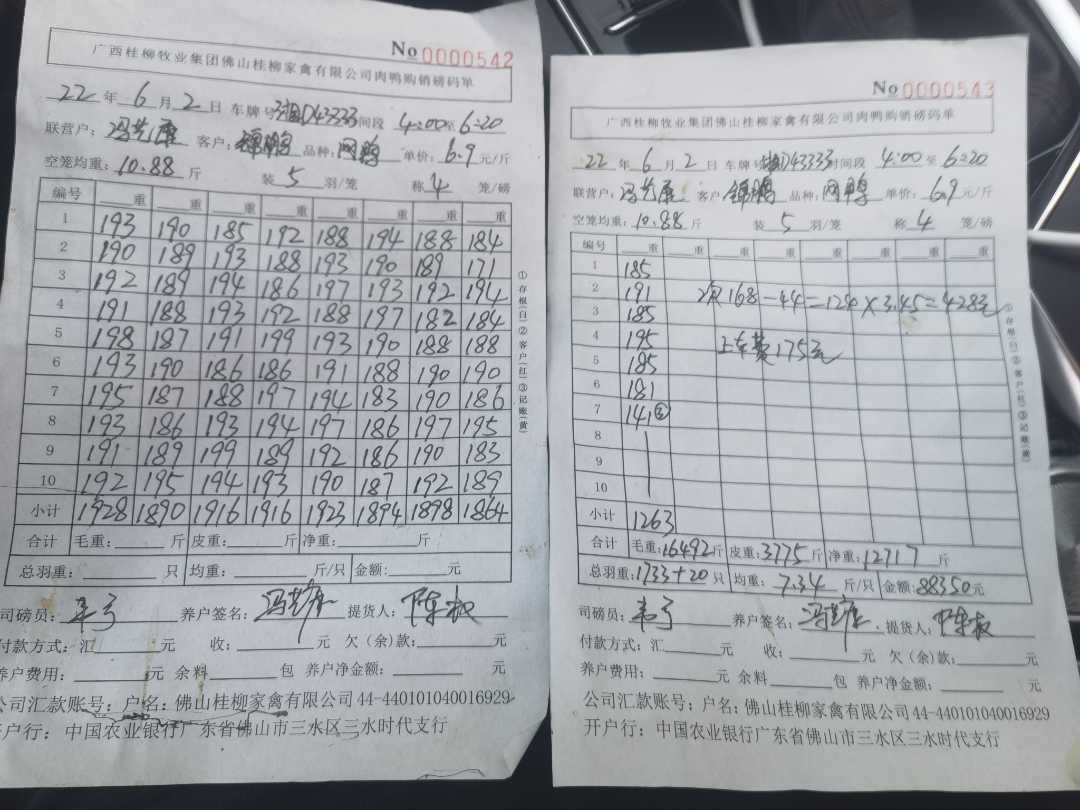 No 0000542
广西桂柳牧业集团佛山桂柳家禽有限公司肉鸭购销磅码单
22 年 6 月 2 日 车牌号 D43333 时间段 4:00 至 6:20
联营户: 客户: 锦鹏 品种: 单价: 6.9 元/斤
空笼均重: 10.88 斤 装 5 羽/笼 称 4 笼/磅
编号 重 重 重 重 重 重 重 重
1 193 190 185 192 188 194 188 184
2 190 189 193 188 193 190 189 171
3 192 189 194 186 197 193 192 194
4 191 188 193 192 188 197 182 184
5 198 187 191 199 193 190 188 188
6 193 190 186 186 191 188 190 190
7 195 187 188 197 194 183 190 186
8 193 186 193 194 197 186 197 195
9 191 189 199 189 192 186 190 183
10 192 195 194 193 190 187 192 189
小计 1928 1890 1916 1916 1923 1894 1898 1864
合计 毛重: 斤 皮重: 斤 净重: 斤
总羽重: 只 均重: 斤/只 金额: 元
司磅员: 养户签名: 提货人:
付款方式: 汇 元 收: 元 欠(余)款: 元
养户费用: 元 余料 包 养户净金额: 元
公司汇款账号: 户名: 佛山桂柳家禽有限公司 44-440101040016929
开户行: 中国农业银行广东省佛山市三水区三水时代支行
①存根(白)②客户(红)③记账(黄)
No 0000543
广西桂柳牧业集团佛山桂柳家禽有限公司肉鸭购销磅码单
22 年 6 月 2 日 车牌号 D43333 时间段 4:00 至 6:20
联营户: 客户 锦鹏 品种: 单价: 6.9 元/斤
空笼均重: 10.88 斤 装 5 羽/笼 称 4 笼/磅
编号 重 重 重 重 重 重 重 重
1 185
2 191 次168-44=124×3.45=428元
3 185
4 195 上车费175元
5 185
6 181
7 141
8
9
10
小计 1263
合计 毛重: 16492 斤 皮重: 3775 斤 净重: 12717 斤
总羽重: 1733+20 只 均重: 7.34 斤/只 金额: 88350 元
司磅员: 养户签名: 提货人:
付款方式: 汇 元 收: 元 欠(余)款: 元
养户费用: 元 余料 包 养户净金额: 元
公司汇款账号: 户名: 佛山桂柳家禽有限公司 44-440101040016929
开户行: 中国农业银行广东省佛山市三水区三水时代支行
①存根(白)②客户(红)③记账(黄)